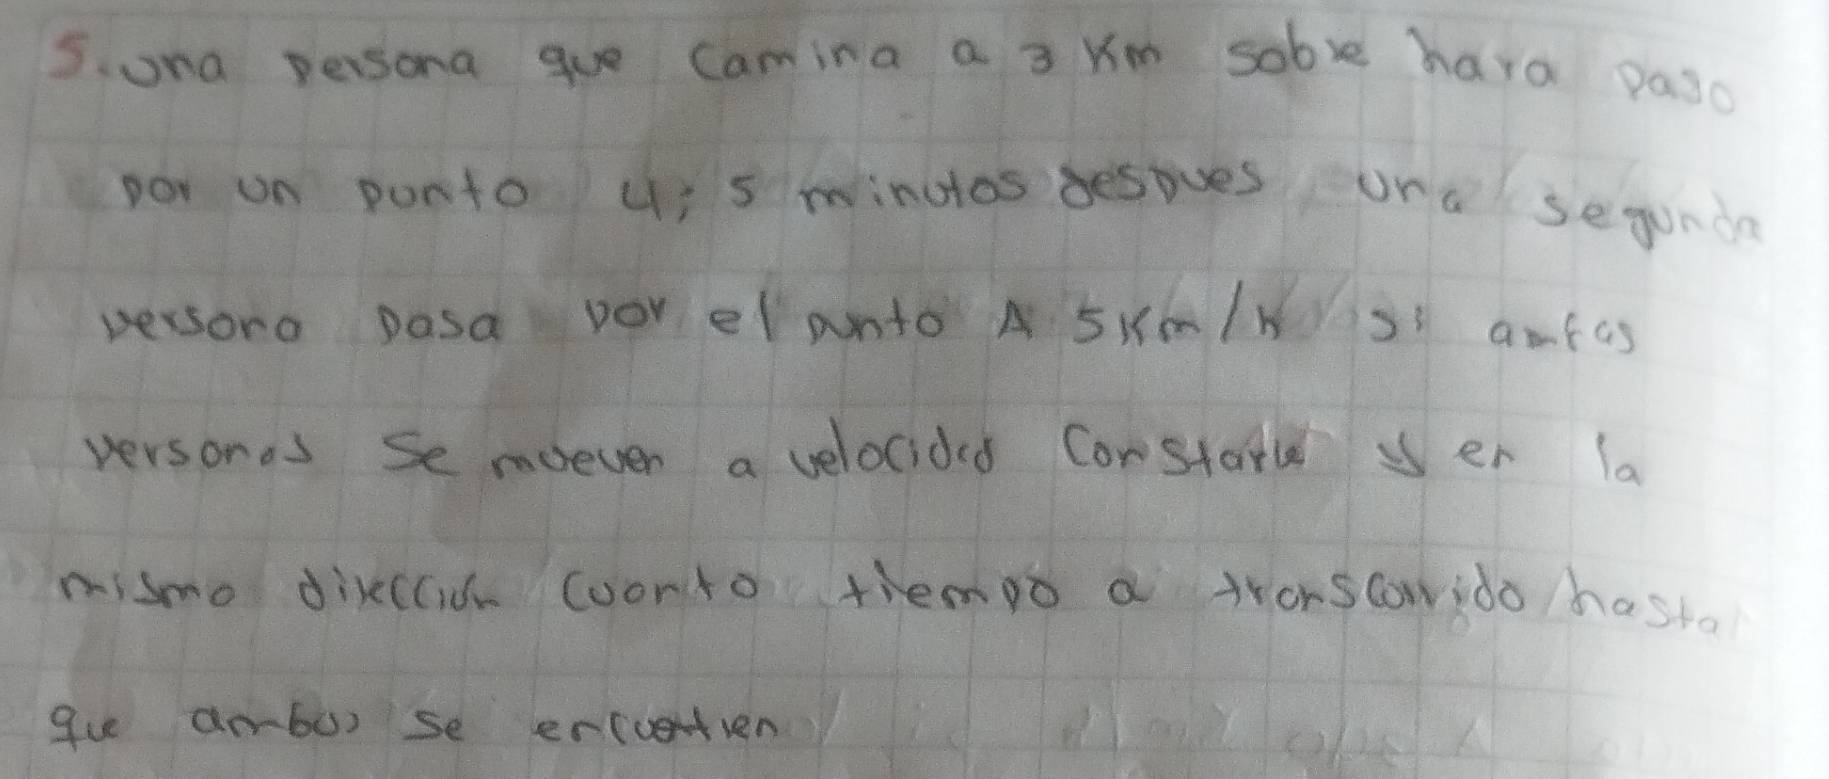 5. una persona que camina a 3 Km sobre hara paso
por un punto 4; 5 minutos despues una segunda
persona pasa por el punto A 5 Km/h si ambas
personas se mueven a velocidad constante y en la
misma direccion cuanto tiempo a transcurrido hasta
que ambos se encuentren